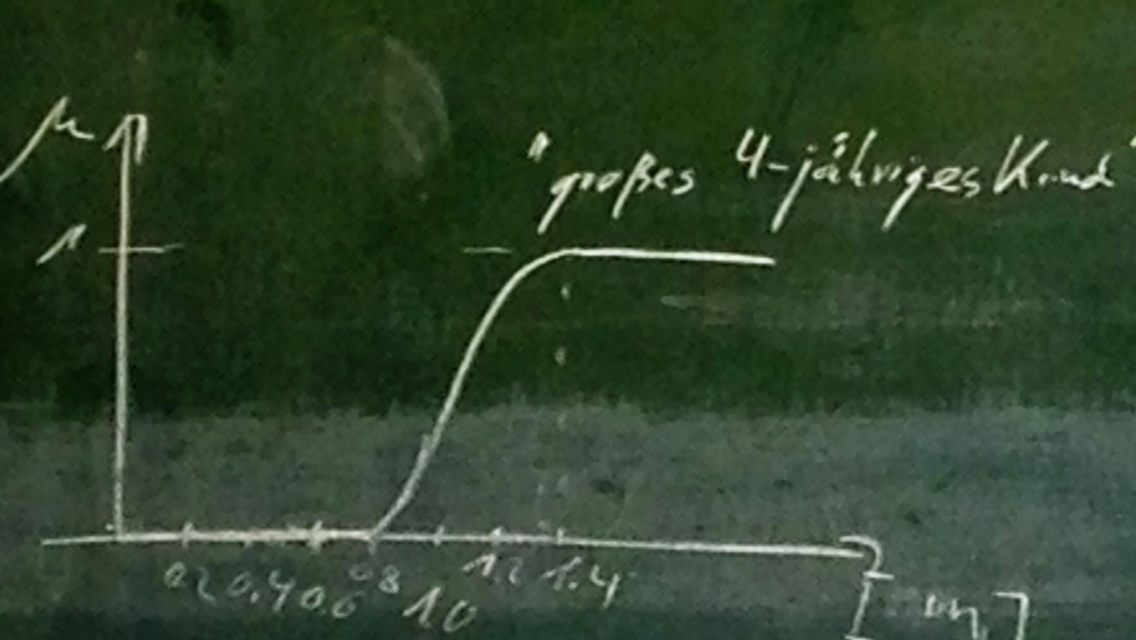 μ
"großes 4-jähriges Kind"
1
0.2 0.4 0.6 0.8 1.0 1.2 1.4
[m]